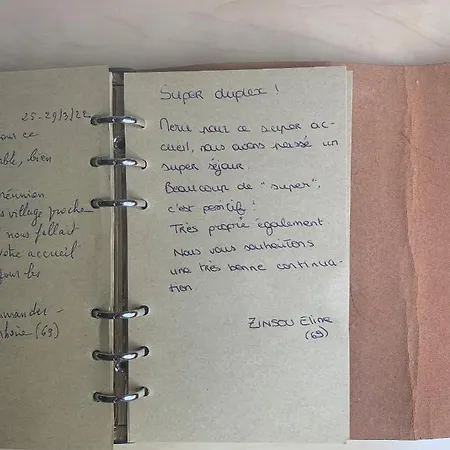 25-29/3/22
ce
able, bien
réunion
village proche
nous fallait
votre accueil
pour les
(69)
Super duplex !
Merci pour ce super ac-
cueil, nous avons passé un
super séjour.
Beaucoup de "super",
c'est positif !
Très propre également.
Nous vous souhaitons
une très bonne continua-
tion.
ZINSOU Eline
(69)